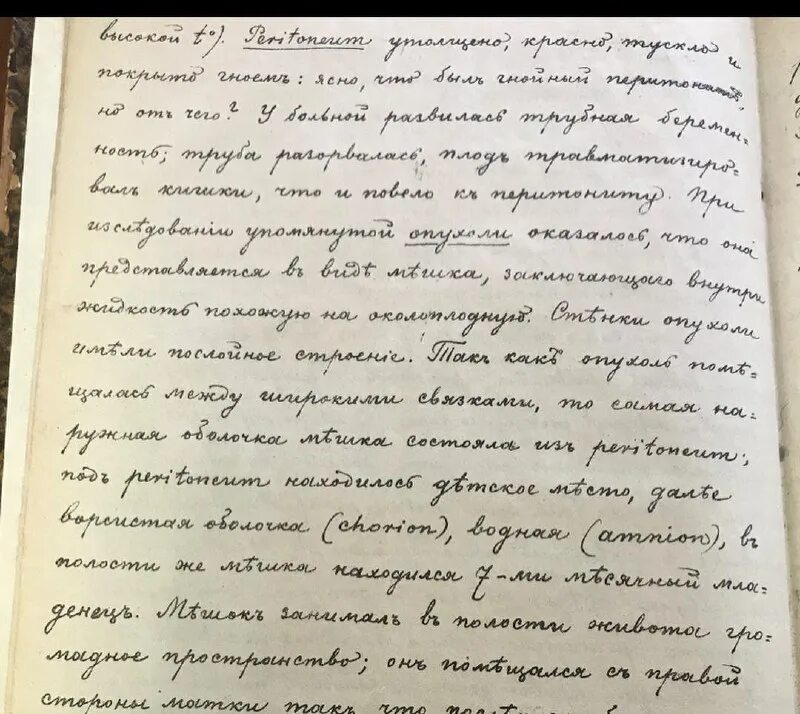 высокой t°). Peritoneum утолщено, красно, тускло и
покрыто гноемъ: ясно, что былъ гнойный перитонитъ,
но отъ чего? У больной развилась трубная беремен-
ность; труба разорвалась, плодъ травматизиро-
валъ кишки, что и повело къ перитониту. При
изслѣдованіи упомянутой опухоли оказалось, что она
представляется въ видѣ мѣшка, заключающаго внутри
жидкость похожую на околоплодную. Стѣнки опухоли
имѣли послойное строеніе. Такъ какъ опухоль помѣ-
щалась между широкими связками, то самая на-
ружная оболочка мѣшка состояла изъ peritoneum;
подъ peritoneum находилось дѣтское мѣсто, далѣе
ворсистая оболочка (chorion), водная (amnion), въ
полости же мѣшка находился 7-ми мѣсячный мла-
денецъ. Мѣшокъ занималъ въ полости живота гро-
мадное пространство; онъ помѣщался съ правой
стороны матки такъ что